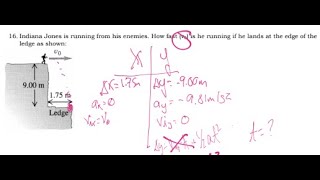 16. Indiana Jones is running from his enemies. How fast (v₀) is he running if he lands at the edge of the
ledge as shown:
v₀
x y
9.00 m
1.75 m
Ledge
Δx=1.75m Δy=-9.00m
aₓ=0 a_y=-9.81m/s2
v_ix=v₀ v_iy=0
Δy= +½at² t=?